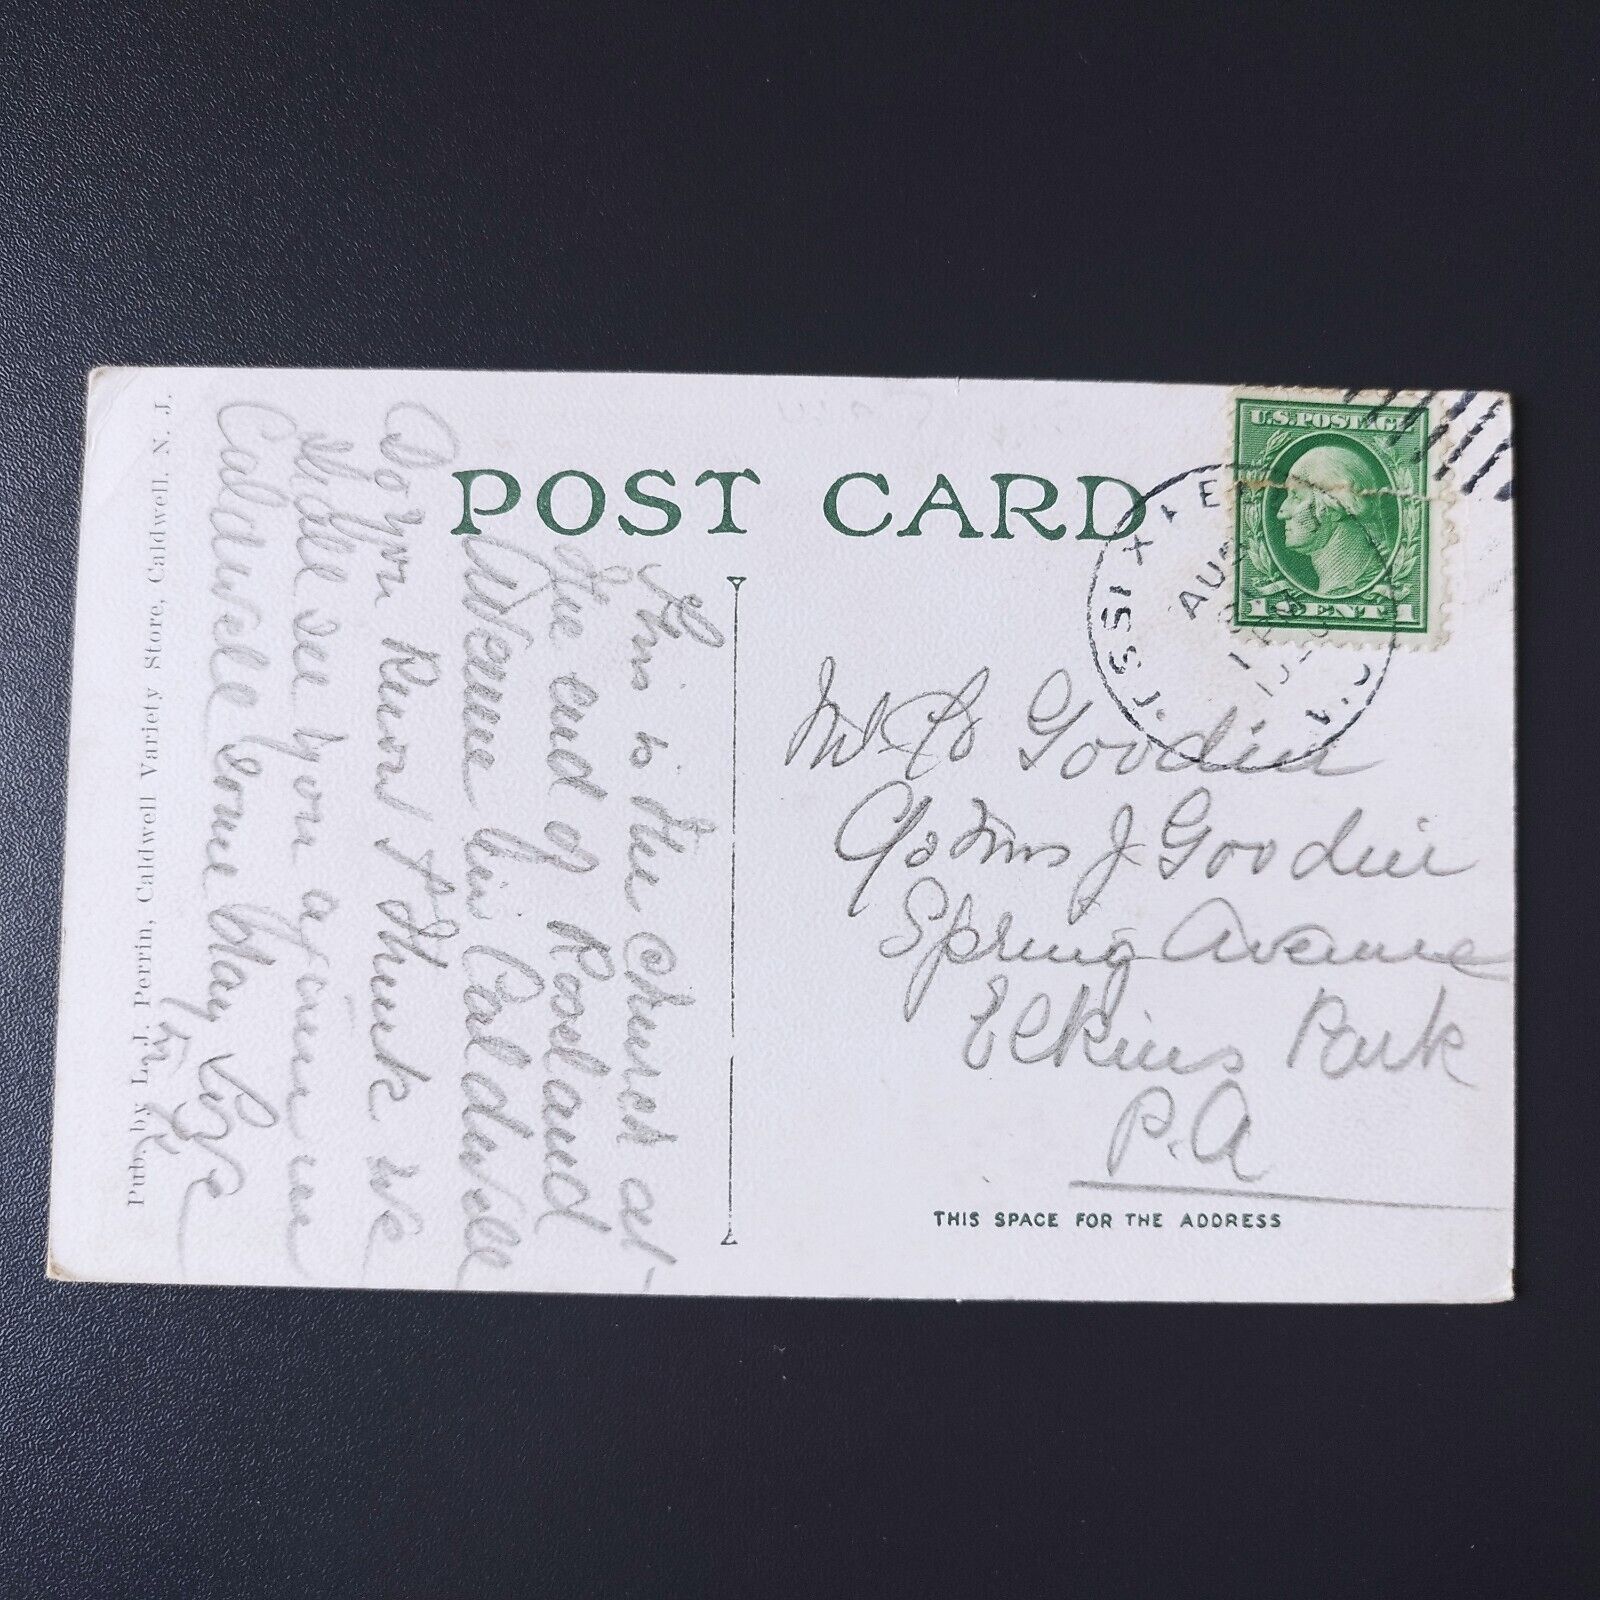 POST CARD
U.S. POSTAGE
1 CENT 1
ESSEX
AUG
This is the church at
the end of Roseland
Avenue in Caldwell
Do you Know I think we
shall see you again in
Caldwell some day
Goodin
c/o Mrs J Goodin
Spring Avenue
Elkins Park
P.A
THIS SPACE FOR THE ADDRESS
Pub. by L. J. Perrin, Caldwell Variety Store, Caldwell, N. J.